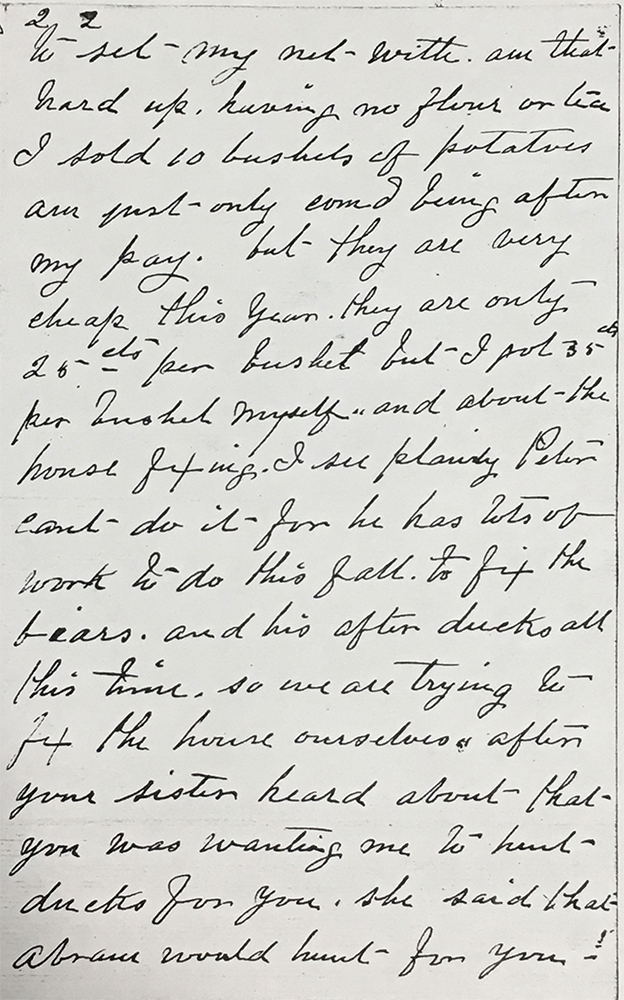 2 2
to set my net with. am that
hard up. having no flour or tea
I sold 10 bushels of potatoes
am just only comd being after
my pay. but they are very
cheap this year. they are only
25 cts per bushel but I got 35 cts
per bushel myself. and about the
house fixing. I see plainly Peter
cant do it for he has lots of
work to do this fall. to fix the
bears. and his after ducks all
this time. so we are trying to
fix the house ourselves. after
your sister heard about that
you was wanting me to hunt
ducks for you. she said that
Abram would hunt for you !